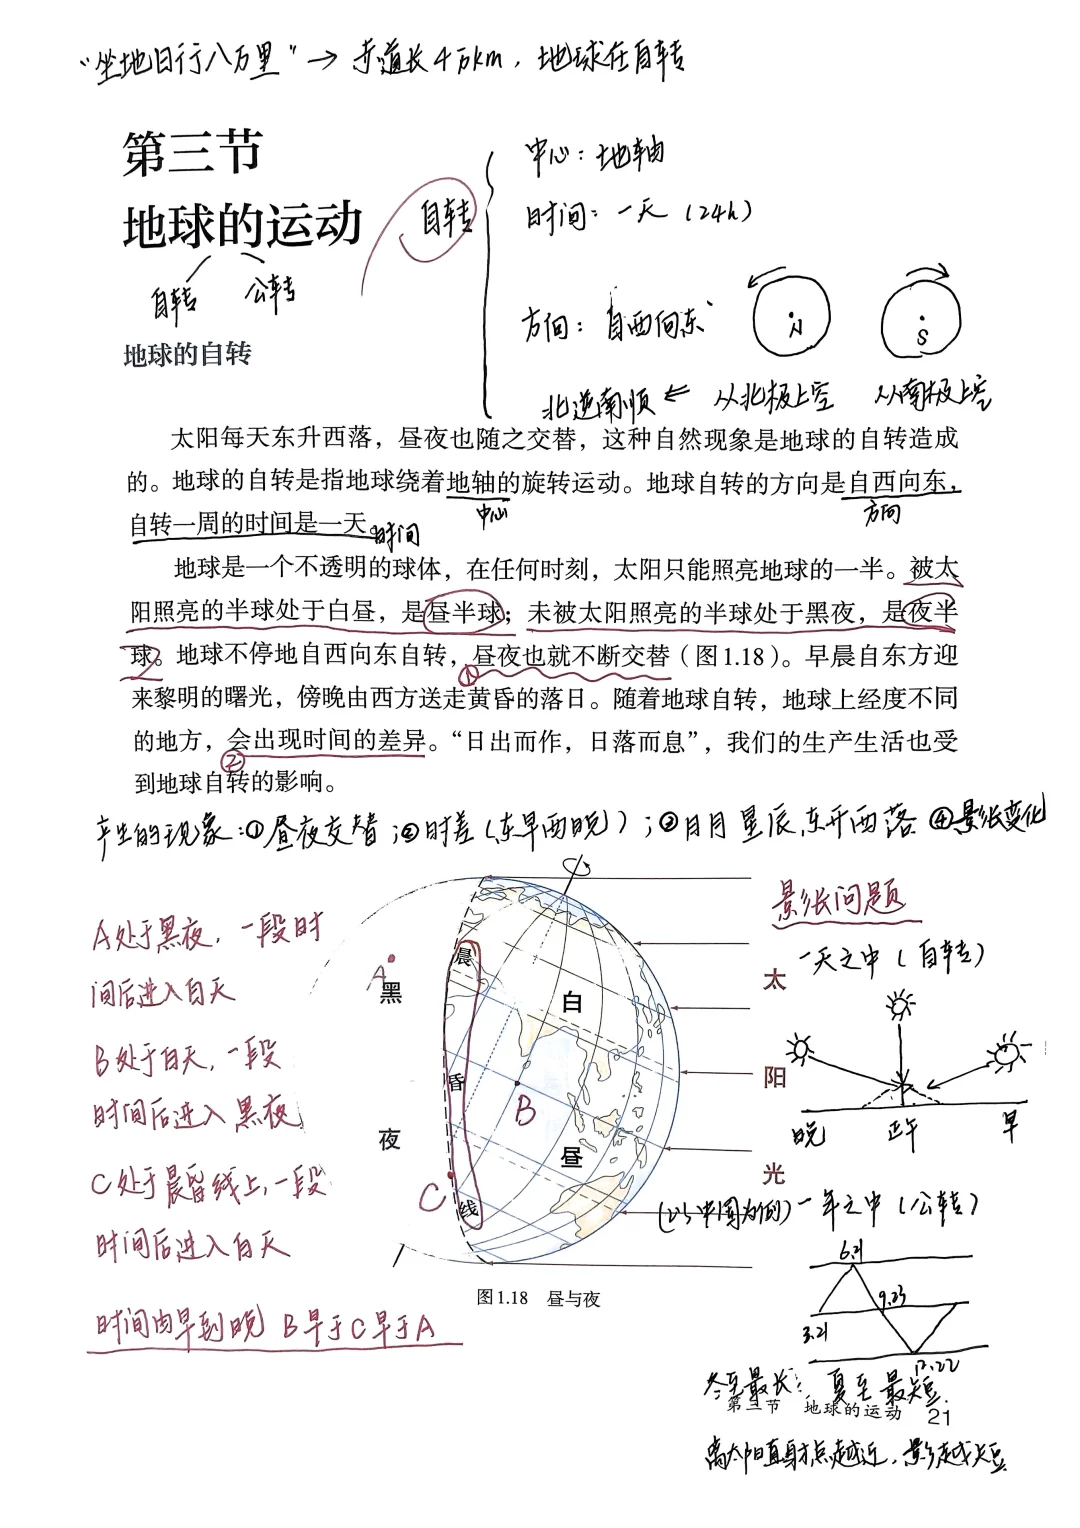 “坐地日行八万里”→ 赤道长4万km，地球在自转
第三节
地球的运动
自转 公转
自转
中心：地轴
时间：一天（24h）
方向：自西向东
N
S
北逆南顺 ⇐ 从北极上空 从南极上空
地球的自转
太阳每天东升西落，昼夜也随之交替，这种自然现象是地球的自转造成
的。地球的自转是指地球绕着地轴的旋转运动。地球自转的方向是自西向东，
中心 方向
自转一周的时间是一天。时间
地球是一个不透明的球体，在任何时刻，太阳只能照亮地球的一半。被太
阳照亮的半球处于白昼，是昼半球；未被太阳照亮的半球处于黑夜，是夜半
球。地球不停地自西向东自转，昼夜也就不断交替（图1.18）。早晨自东方迎
①
来黎明的曙光，傍晚由西方送走黄昏的落日。随着地球自转，地球上经度不同
的地方，会出现时间的差异。“日出而作，日落而息”，我们的生产生活也受
②
到地球自转的影响。
产生的现象：①昼夜交替；②时差（东早西晚）；③日月星辰东升西落 ④影长变化
A处于黑夜，一段时
间后进入白天
B处于白天，一段
时间后进入黑夜
C处于晨昏线上，一段
时间后进入白天
时间由早到晚 B早于C早于A
A
黑
夜
晨
昏
线
白
昼
B
C
太
阳
光
图1.18 昼与夜
影长问题
一天之中（自转）
晚 正午 早
（以中国为例）一年之中（公转）
6.21
9.23
3.21
12.22
冬至最长；夏至最短
第三节 地球的运动 21
离太阳直射点越近，影越短